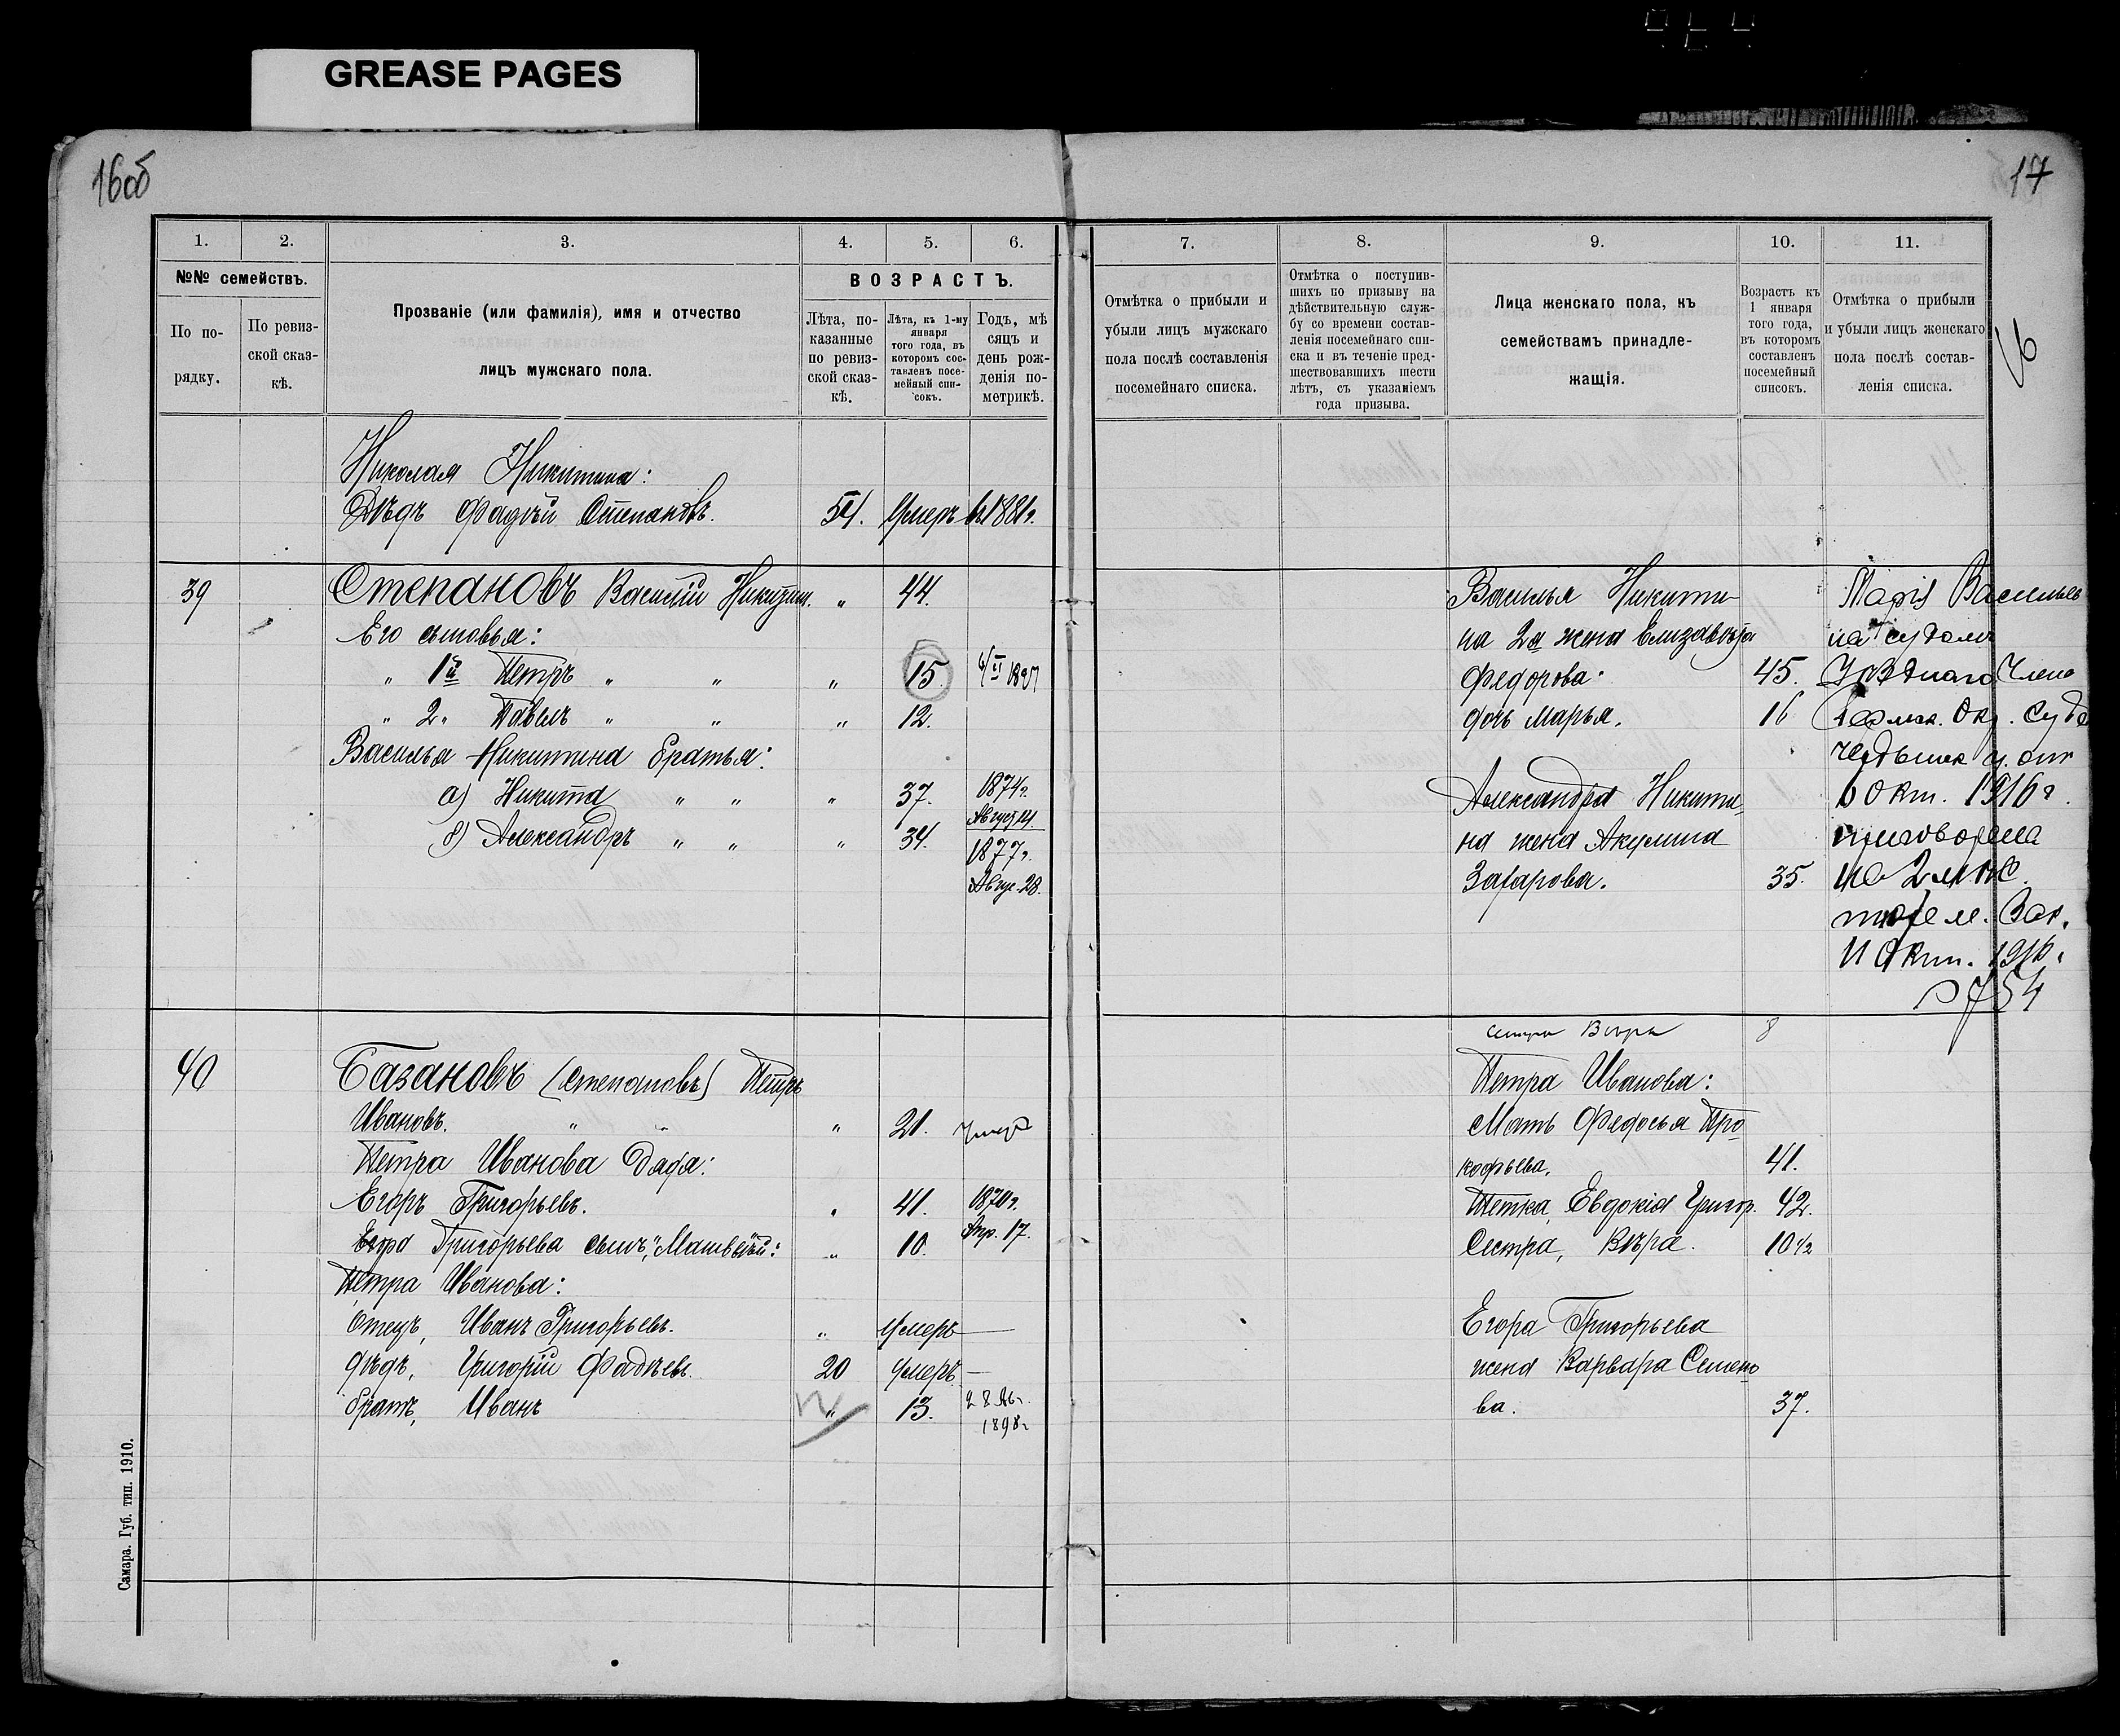 GREASE PAGES
16об
17
1.
2.
3.
4.
5.
6.
№№ семействъ.
По по-
рядку.
По ревиз-
ской сказ-
кѣ.
Прозваніе (или фамилія), имя и отчество
лицъ мужскаго пола.
ВОЗРАСТЪ.
Лѣта, по-
казанные
по ревиз-
ской сказ-
кѣ.
Лѣта, къ 1-му
января
того года, въ
которомъ сос-
тавленъ посе-
мейный спи-
сокъ.
Годъ, мѣ
сяцъ и
день рож-
денія по-
метрикѣ.
Николая Никитина:
Дѣдъ Фадѣй Степановъ. 54. Умеръ въ 1881г.
39 Степановъ Василій Никитин. „ 44.
Его сыновья:
„ 1й Петръ „ „ „ 15 1897
„ 2„ Павелъ „ „ „ 12.
Василья Никитина братья:
а) Никита „ „ „ 37. 1874г.
Август 14.
б) Александръ „ „ „ 34. 1877г.
Авгус. 28.
40 Базановъ (Степановъ) Петръ
Ивановъ. „ „ „ 21. умеръ
Петра Иванова дядя:
Егоръ Григорьевъ. „ 41. 1870г.
Апр. 17.
Егора Григорьева сынъ, „Матвѣй": „ 10.
Петра Иванова:
Отецъ, Иванъ Григорьевъ. „ умеръ —
Дѣдъ, Григорій Фадѣевъ. 20 умеръ —
братъ, Иванъ „ 13. 28 Авг.
1898г
Самара. Губ. тип. 1910.
7.
8.
9.
10.
11.
Отмѣтка о прибыли и
убыли лицъ мужскаго
пола послѣ составленія
посемейнаго списка.
Отмѣтка о поступив-
шихъ по призыву на
дѣйствительную служ-
бу со времени состав-
ленія посемейнаго спи-
ска и въ теченіе пред-
шествовавшихъ шести
лѣтъ, съ указаніемъ
года призыва.
Лица женскаго пола, къ
семействамъ принадле-
жащія.
Возрастъ къ
1 января
того года,
въ которомъ
составленъ
посемейный
списокъ.
Отмѣтка о прибыли
и убыли лицъ женскаго
пола послѣ состав-
ленія списка.
Василья Никити-
на 2я жена Елизавета
Федорова. 45.
дочь Марья. 16
Александра Никити-
на жена Акулина
Захарова. 35.
Марія Васильев
на судом
Уѣзднаго Члена
Окр. Суда
6 Окт. 1916г.
приговорена
на 2 мѣс.
тюрем. Зак.
11 Окт. 1916.
754
сестра Вѣра 8
Петра Иванова:
Мать Федосья Про-
кофьева. 41.
Тетка, Евдокія Григор. 42.
Сестра, Вѣра. 10 1/2
Егора Григорьева
жена Варвара Семено
ва. 37.